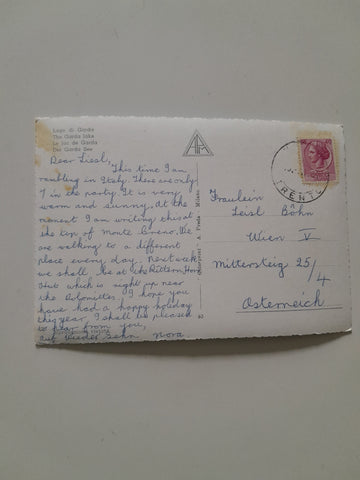 Lago di Garda
The Garda lake
Le lac de Garda
Der Garda See
Dear Liesl,
This time I am
rambling in Italy. There are only
7 in the party. It is very
warm and sunny, at the
moment I am writing this at
the top of Monte Creno. We
are walking to a different
place every day. Next week
we shall be at the Rittern Horn
Hut which is right up near
the Dolomites. I hope you
have had a happy holiday
this year, I shall be pleased
to hear from you,
Auf Wieder Sehn Nora.
Fraulein
Leisl Böhn
Wien V
Mittersteig 25/4
Osterreich
TRENTO